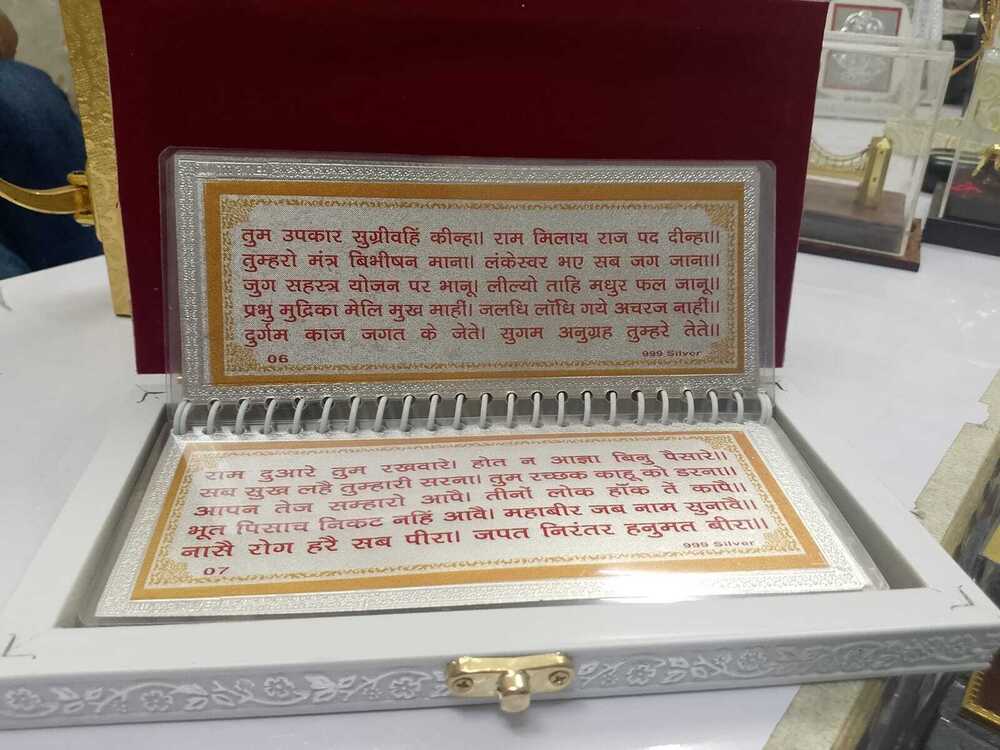 तुम उपकार सुग्रीवहिं कीन्हा। राम मिलाय राज पद दीन्हा।।
तुम्हरो मंत्र बिभीषन माना। लंकेस्वर भए सब जग जाना।।
जुग सहस्त्र योजन पर भानू। लील्यो ताहि मधुर फल जानू।।
प्रभु मुद्रिका मेलि मुख माहीं। जलधि लाँधि गये अचरज नाहीं।।
दुर्गम काज जगत के जेते। सुगम अनुग्रह तुम्हरे तेते।।
06 999 Silver
राम दुआरे तुम रखवारे। होत न आज्ञा बिनु पैसारे।।
सब सुख लहै तुम्हारी सरना। तुम रच्छक काहू को डरना।।
आपन तेज सम्हारो आपै। तीनों लोक हाँक तें कांपै।।
भूत पिसाच निकट नहिं आवै। महाबीर जब नाम सुनावै।।
नासै रोग हरै सब पीरा। जपत निरंतर हनुमत बीरा।।
07 999 Silver